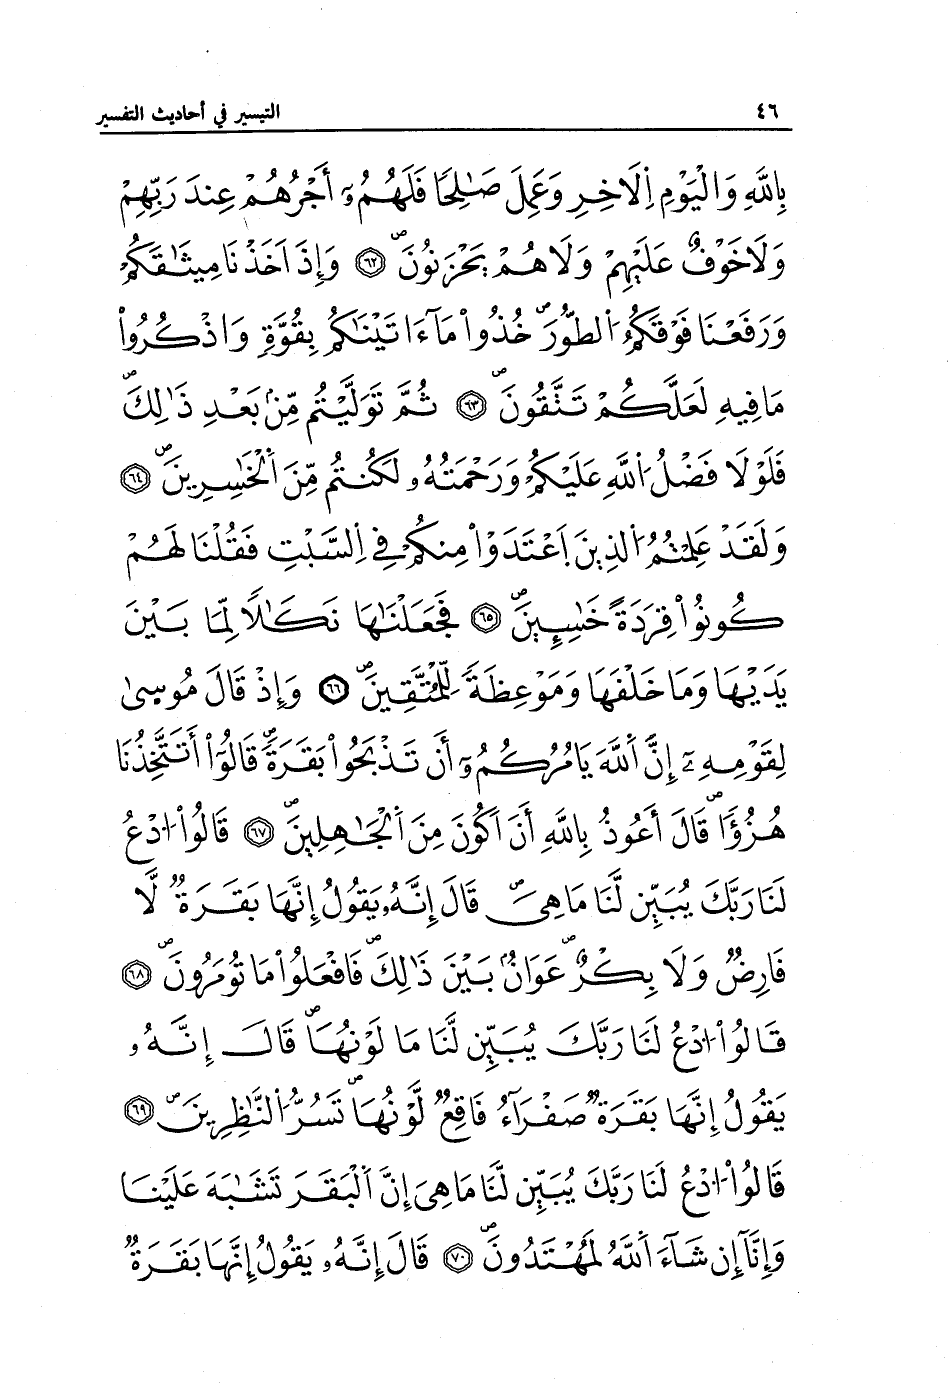 ٤٦ التيسير في أحاديث التفسير
بِاللَّهِ وَالْيَوْمِ اِلَاخِرِ وَعَمِلَ صَٰلِحًا فَلَهُمُۥٓ أَجْرُهُمْ عِندَ رَبِّهِمْ
وَلَا خَوْفٌ عَلَيْهِمْ وَلَا هُمْ يَحْزَنُونَۖ ٦٢ وَإِذَ اَخَذْنَا مِيثَٰقَكُمْ
وَرَفَعْنَا فَوْقَكُمُ اُلطُّورَۖ خُذُواْ مَآءَاتَيْنَٰكُم بِقُوَّةٖ وَاذْكُرُواْ
مَا فِيهِ لَعَلَّكُمْ تَتَّقُونَۖ ٦٣ ثُمَّ تَوَلَّيْتُم مِّنۢ بَعْدِ ذَٰلِكَۖ
فَلَوْلَا فَضْلُ اُللَّهِ عَلَيْكُمْ وَرَحْمَتُهُۥ لَكُنتُم مِّنَ اَلْخَٰسِرِينَۖ ٦٤
وَلَقَدْ عَلِمْتُمُ اُلذِينَ اَعْتَدَوْاْ مِنكُمْ فِے اِلسَّبْتِ فَقُلْنَا لَهُمْ
كُونُواْ قِرَدَةً خَٰسِـِٕينَۖ ٦٥ فَجَعَلْنَٰهَا نَكَٰلًا لِّمَا بَيْنَ
يَدَيْهَا وَمَا خَلْفَهَا وَمَوْعِظَةً لِّلْمُتَّقِينَۖ ٦٦ وَإِذْ قَالَ مُوسىٰ
لِقَوْمِهِۦٓ إِنَّ اَللَّهَ يَامُرُكُمُۥٓ أَن تَذْبَحُواْ بَقَرَةًۖ قَالُوٓاْ أَتَتَّخِذُنَا
هُزُؤًاۖ قَالَ أَعُوذُ بِاللَّهِ أَنَ اَكُونَ مِنَ اَلْجَٰهِلِينَۖ ٦٧ قَالُواْ اُدْعُ
لَنَا رَبَّكَ يُبَيِّن لَّنَا مَا هِيَۖ قَالَ إِنَّهُۥ يَقُولُ إِنَّهَا بَقَرَةٌ لَّا
فَارِضٌ وَلَا بِكْرٌۖ عَوَانٌۢ بَيْنَ ذَٰلِكَۖ فَافْعَلُواْ مَا تُومَرُونَۖ ٦٨
قَالُواْ اُدْعُ لَنَا رَبَّكَ يُبَيِّن لَّنَا مَا لَوْنُهَاۖ قَالَ إِنَّهُۥ
يَقُولُ إِنَّهَا بَقَرَةٌ صَفْرَآءُ فَاقِعٌ لَّوْنُهَاۖ تَسُرُّ اُلنَّٰظِرِينَۖ ٦٩
قَالُواْ اُدْعُ لَنَا رَبَّكَ يُبَيِّن لَّنَا مَا هِيَ إِنَّ اَلْبَقَرَ تَشَٰبَهَ عَلَيْنَا
وَإِنَّآ إِن شَآءَ اَللَّهُ لَمُهْتَدُونَۖ ٧٠ قَالَ إِنَّهُۥ يَقُولُ إِنَّهَا بَقَرَةٌ